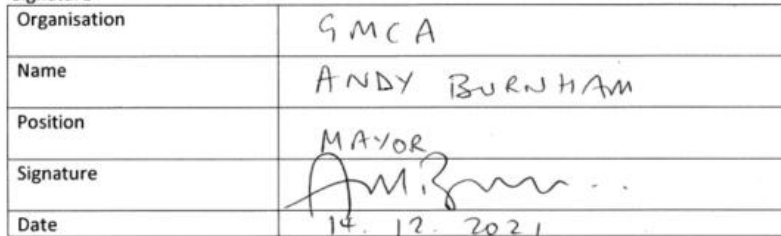 Organisation GMCA
Name ANDY BURNHAM
Position MAYOR
Signature
Date 14. 12. 2021